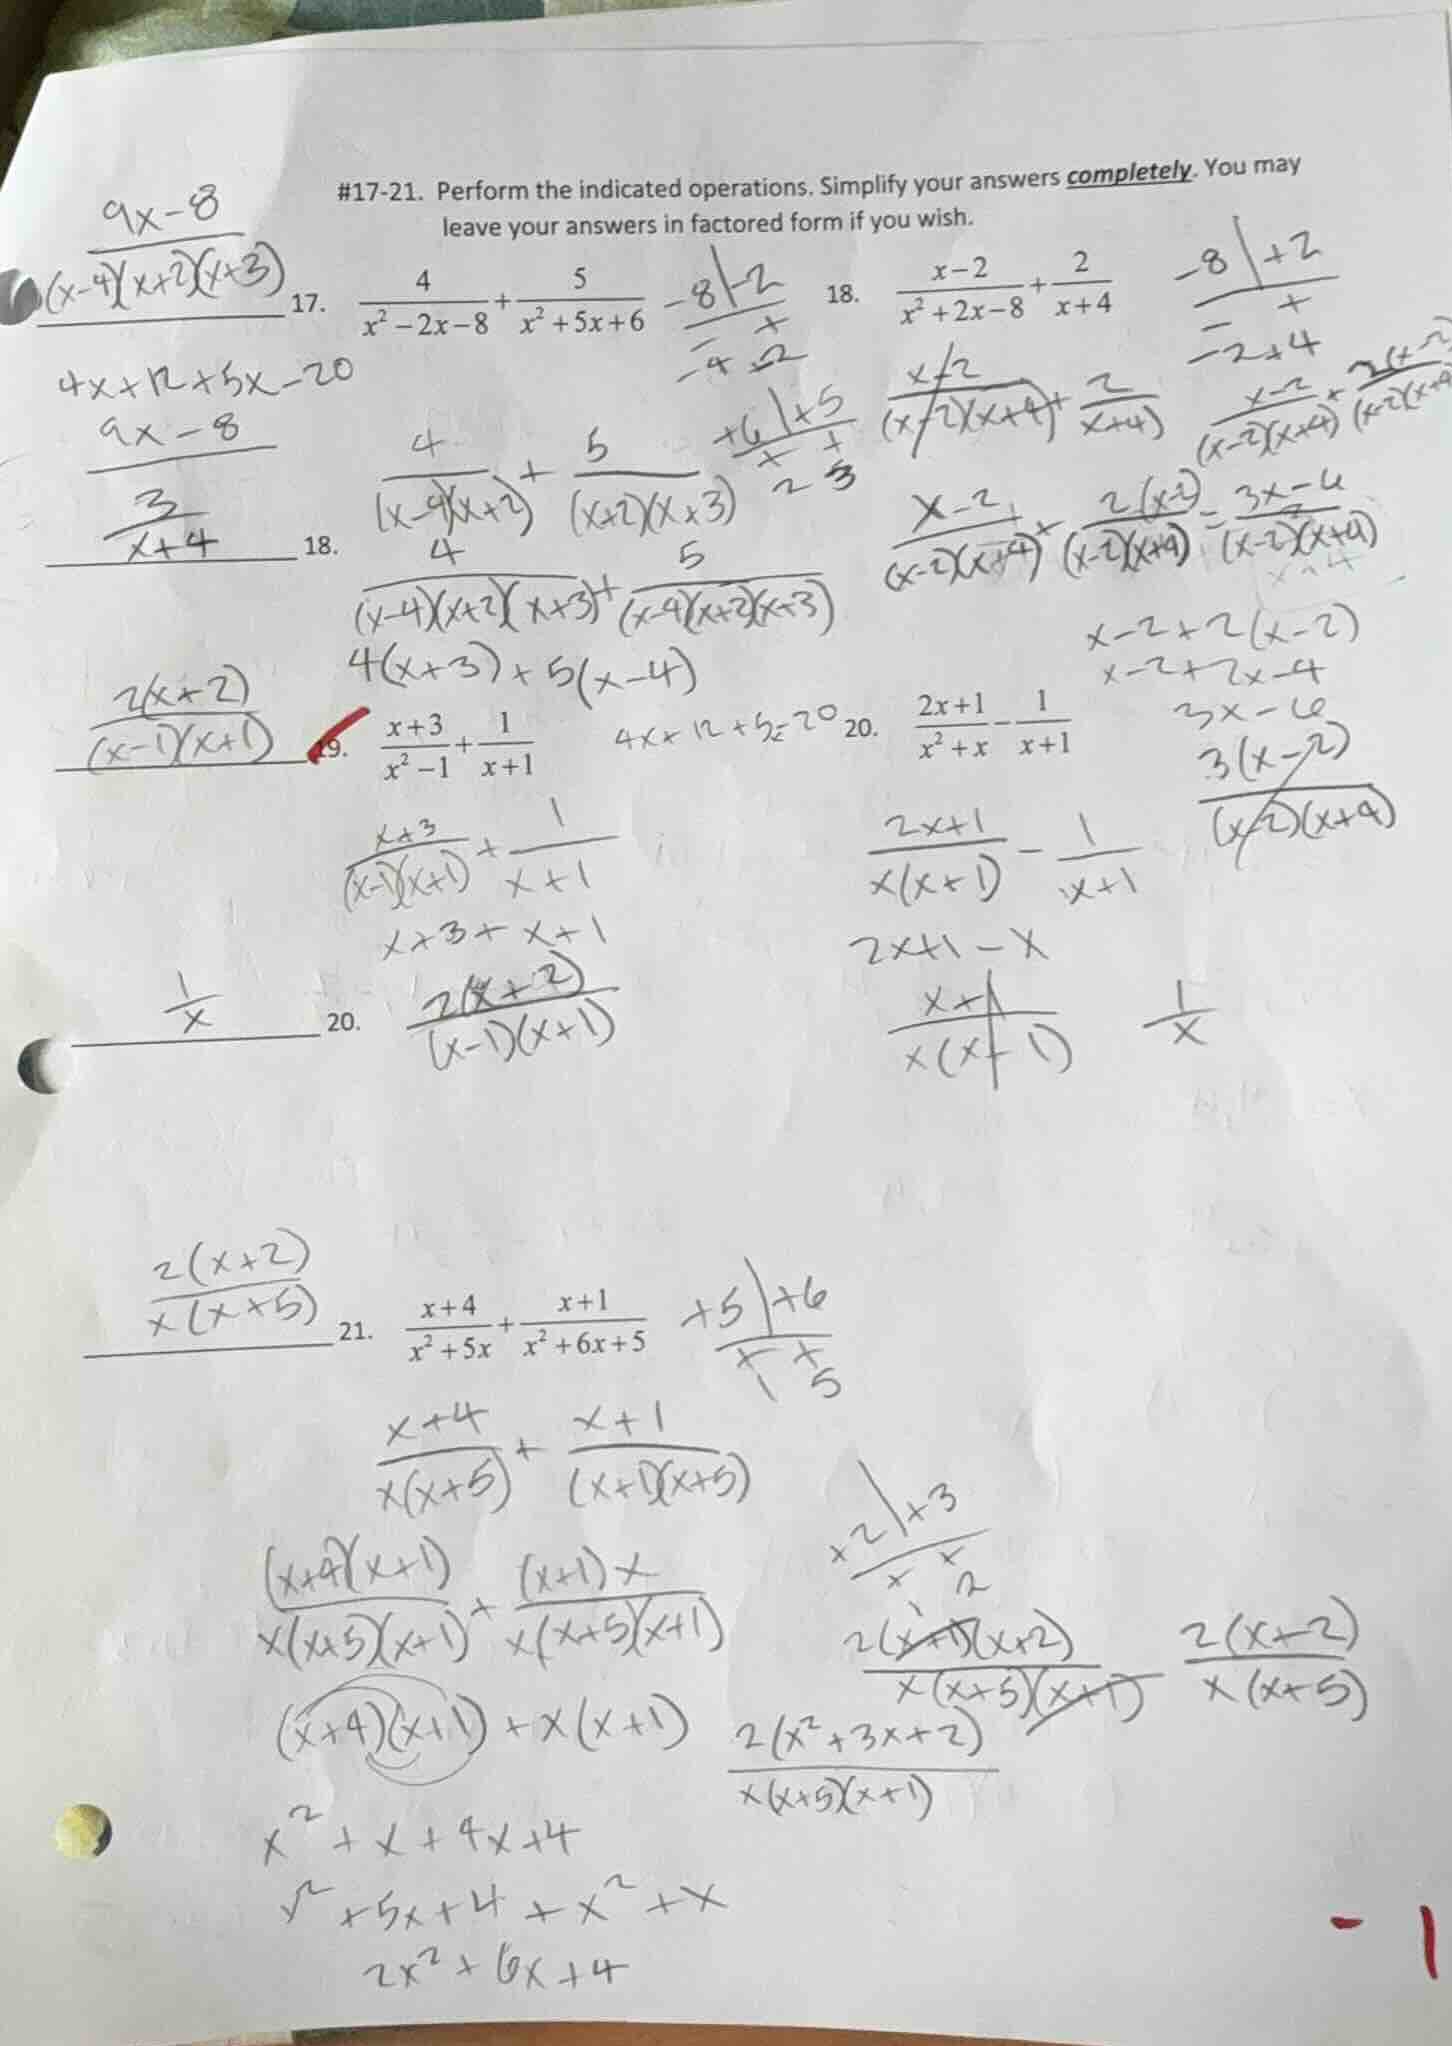 #17-21. Perform the indicated operations. Simplify your answers completely. You may
leave your answers in factored form if you wish.
9x-8
(x-4)(x+2)(x+3)
17. 4/(x²-2x-8) + 5/(x²+5x+6)
-8 | -2
- +
-4 2
4x+12+5x-20
9x-8
+6 | +5
+ +
2 3
4/((x-4)(x+2)) + 5/((x+2)(x+3))
4/((x-4)(x+2)(x+3)) + 5/((x-4)(x+2)(x+3))
4(x+3) + 5(x-4)
4x+12+5x-20
3/(x+4)
18.
18. (x-2)/(x²+2x-8) + 2/(x+4)
-8 | +2
- +
-2 +4
(x-2)/((x-2)(x+4)) + 2/(x+4)
(x-2)/((x-2)(x+4)) +
(x-2)/((x-2)(x+4)) + 2(x-2)/((x-2)(x+4)) = (3x-6)/((x-2)(x+4))
x-2+2(x-2)
x-2+2x-4
3x-6
3(x-2)
(x-2)(x+4)
2(x+2)
(x-1)(x+1)
19. (x+3)/(x²-1) + 1/(x+1)
(x+3)/((x-1)(x+1)) + 1/(x+1)
x+3+x+1
2(x+2)
(x-1)(x+1)
1/x
20.
20. (2x+1)/(x²+x) - 1/(x+1)
(2x+1)/(x(x+1)) - 1/(x+1)
2x+1-x
(x+1)/(x(x+1)) 1/x
2(x+2)
x(x+5)
21. (x+4)/(x²+5x) + (x+1)/(x²+6x+5)
+5 | +6
+ +
1 5
(x+4)/(x(x+5)) + (x+1)/((x+1)(x+5))
+2 | +3
+ +
1 2
(x+4)(x+1)/(x(x+5)(x+1)) + (x+1)x/(x(x+5)(x+1))
2(x+1)(x+2)/(x(x+5)(x+1)) 2(x+2)/(x(x+5))
(x+4)(x+1) + x(x+1)
2(x²+3x+2)/(x(x+5)(x+1))
x²+x+4x+4
x²+5x+4+x²+x
2x²+6x+4
-1